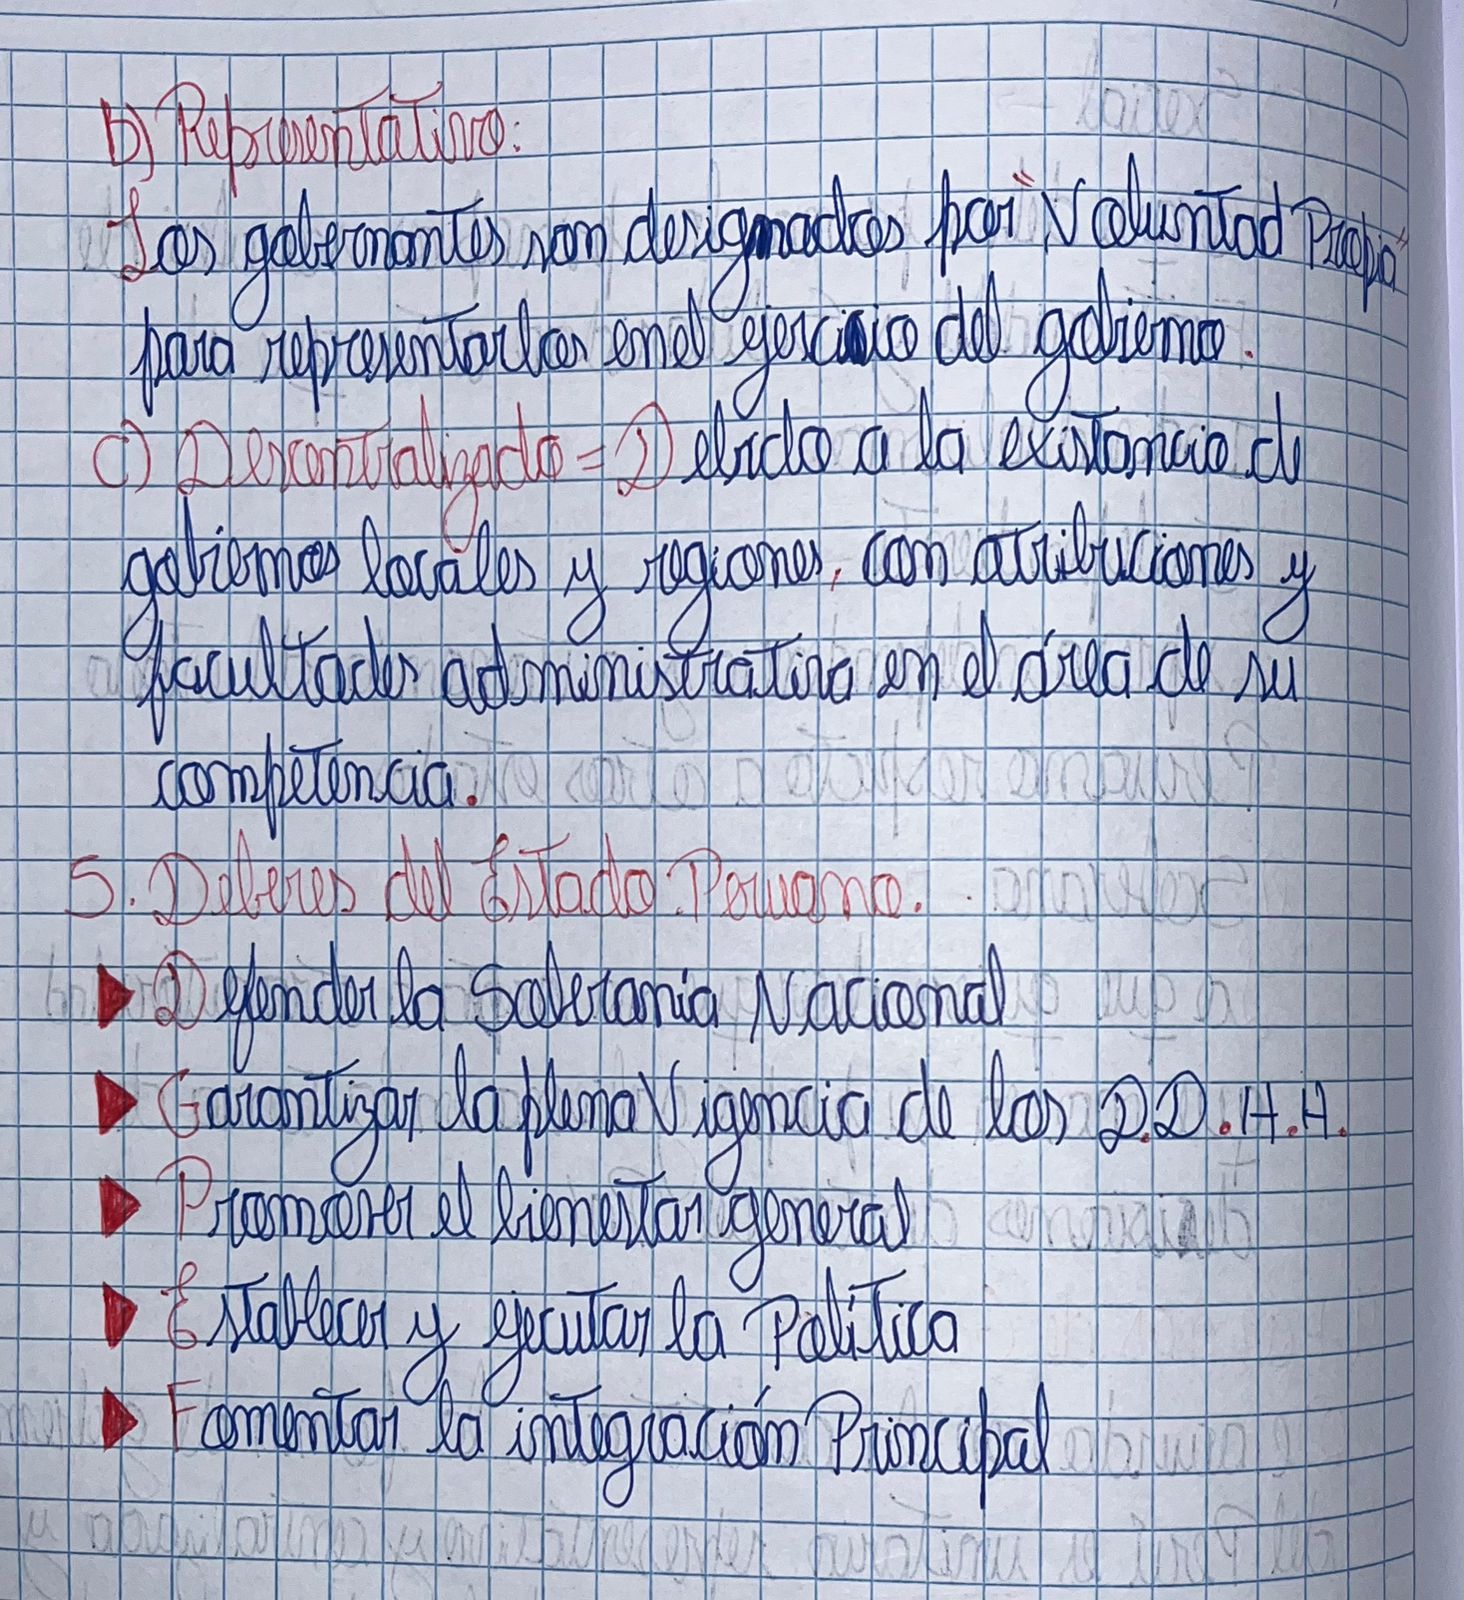 b) Representativo:
Los gobernantes son designados por "Voluntad Propia"
para representarlos en el ejercicio del gobierno.
c) Descentralizado = Debido a la existencia de
gobiernos locales y regiones, con atribuciones y
facultades administrativa en el área de su
competencia.
5. Deberes del Estado Peruano.
▶ Defender la Soberania Nacional
▶ Garantizar la plena Vigencia de los D.D.H.H.
▶ Promover el bienestar general
▶ Establecer y ejecutar la Política
▶ Fomentar la integración Principal